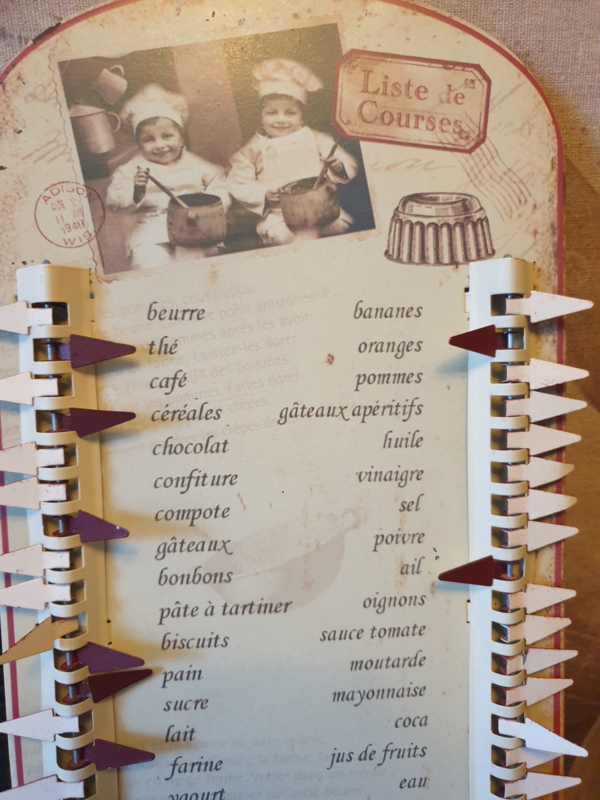 Liste de
Courses
beurre
thé
café
céréales
chocolat
confiture
compote
gâteaux
bonbons
pâte à tartiner
biscuits
pain
sucre
lait
farine
yaourt
bananes
oranges
pommes
gâteaux apéritifs
huile
vinaigre
sel
poivre
ail
oignons
sauce tomate
moutarde
mayonnaise
coca
jus de fruits
eau